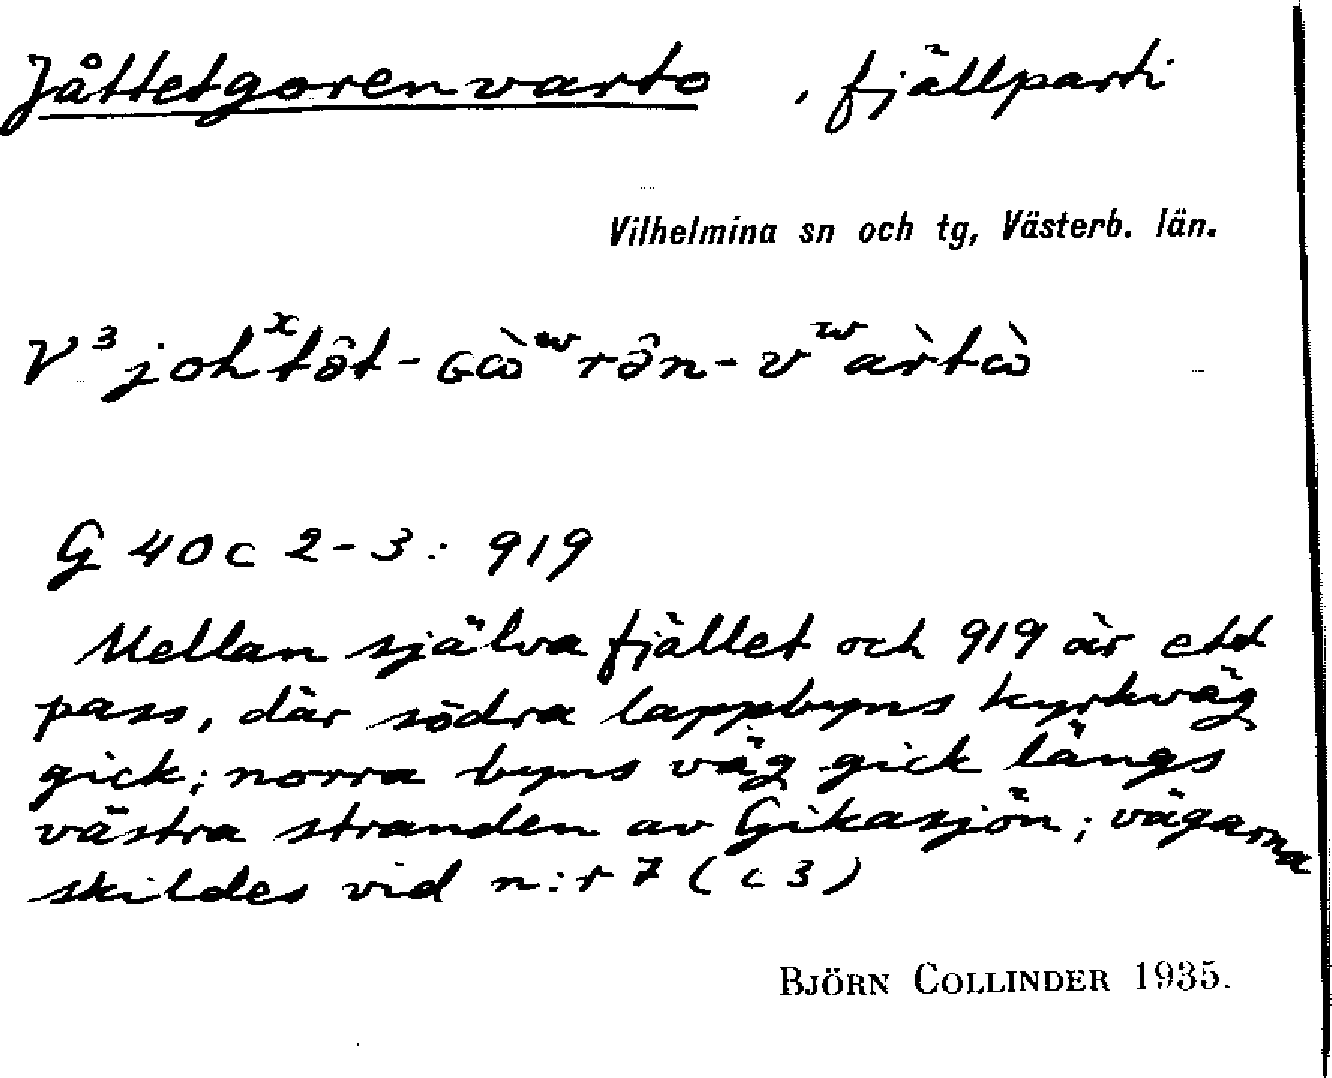 Jåttetgorenvarto, fjällparti
Vilhelmina sn och tg, Västerb. län.
V³ johˣtə̂t-Gɷ̀ʷrə̂n-vʷàrtɷ̀
G 40 c 2-3: 919
Mellan själva fjället och 919 är ett
pass, där södra lappbyns kyrkväg
gick; norra byns väg gick längs
västra stranden av Gikasjön; vägarna
skildes vid n:r 7 (c 3)
BJÖRN COLLINDER 1935.